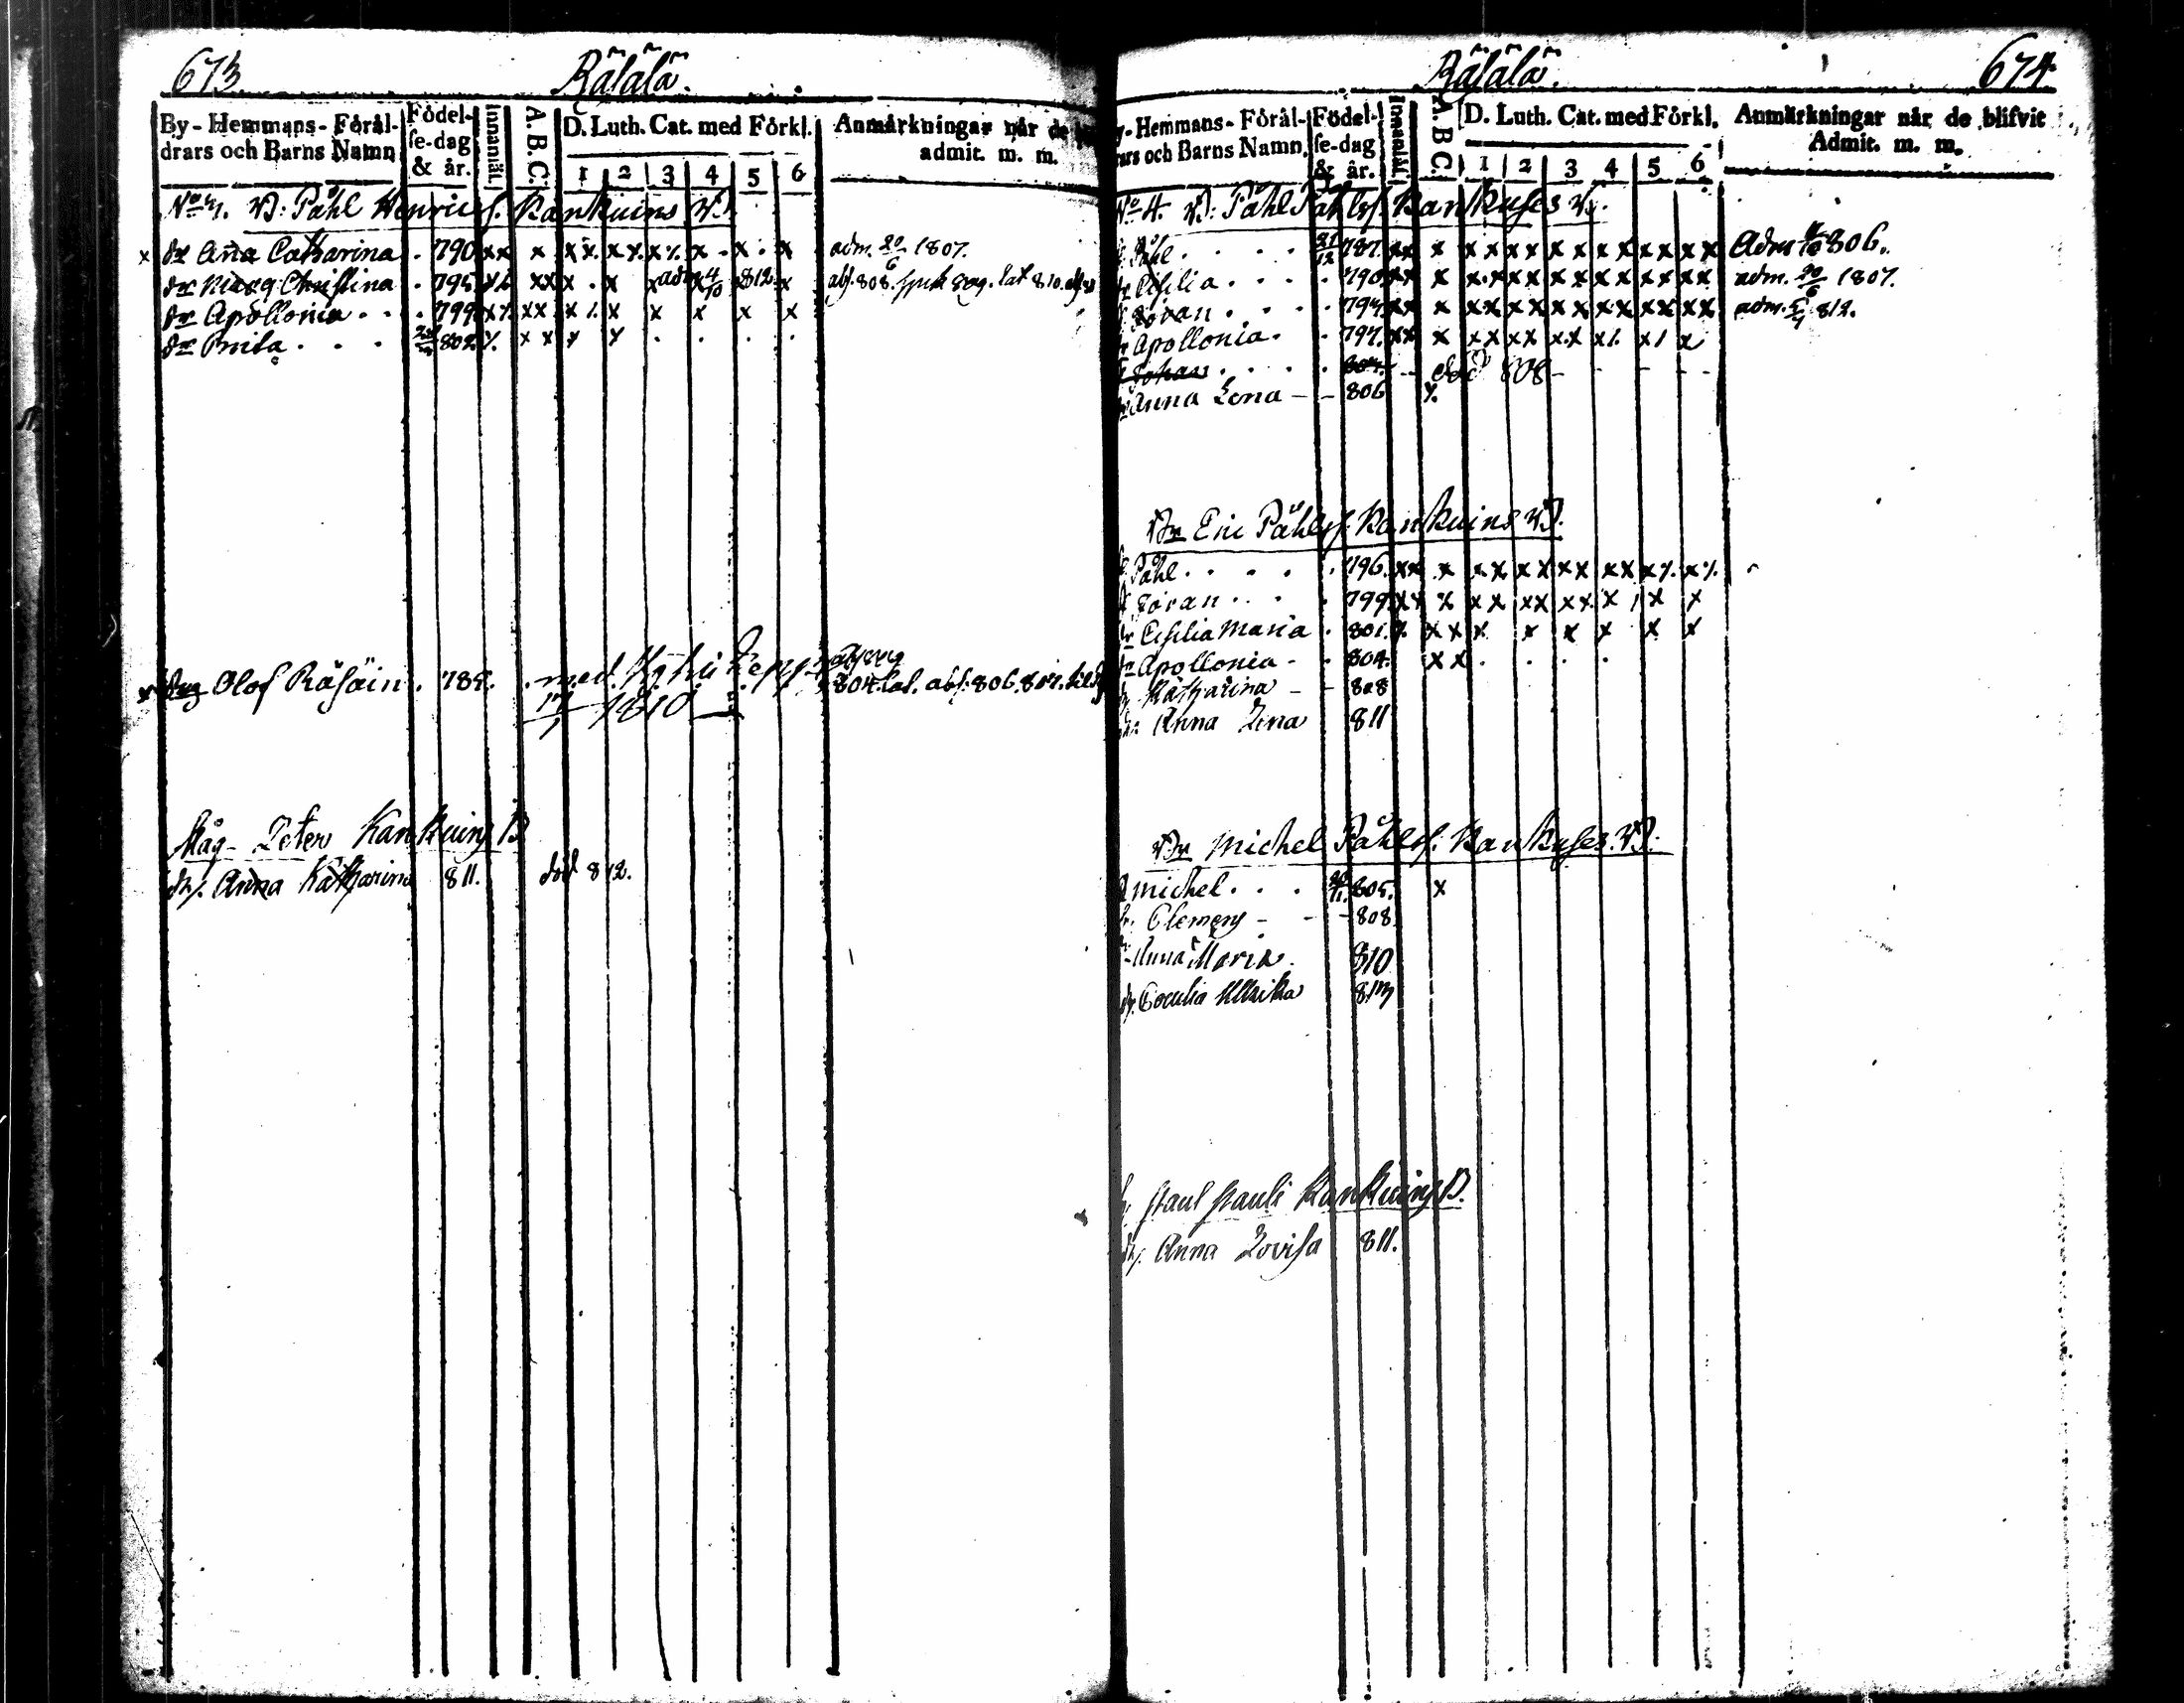 673. Räsälä.
By-Hemmans-Föräl-drars och Barns Namn Födel-se-dag & år. Innanläs. A.B.C. D. Luth. Cat. med Förkl. 1 2 3 4 5 6 Anmärkningar når de admit. m. m.
B: Påhl Henrics. Kankuins B.
x dr Aña Catharina . 790. xx x x x. x x. x x. x . x . x adm. 20/6 1807.
dr Marg. Christina . 795. xx x . x x adm. 4/10 812. x
dr Apollonia . . . 799. xx x x x x x x
dr Brita . . . 802. x x x x . . . .
Olof Räsäin . 784. . med
17/1 1810
804. 806. 807.
Måg Peter Kankuins B
dr. Anna Katharina 811. död 812.
674. Räsälä.
By-Hemmans-Föräl-drars och Barns Namn. Födel-se-dag & år. Innanläs. A.B.C. D. Luth. Cat. med Förkl. 1 2 3 4 5 6 Anmärkningar når de blifvit Admit. m. m.
No 4. B: Påhl Påhlss. Kankuses B.
Påhl . . . . 21/12 787. xx x x x x x x x x x x x x x Adm 806.
Cisilia . . . . 790. xx x x x x x x x x x x x x x adm. 20/6 1807.
Göran . . . . 794. xx x x x x x x x x x x x x x adm. 812.
Apollonia . . 797. xx x x x x x x x x x x
Johan . . . . 804. - - död 808 - - - -
Anna Lena - - 806
Br Eric Påhlss. Kankuins B.
Påhl . . . . . 796. xx x x x x x x x x x x x
Göran . . . . 799. xx x x x x x x x x x x
Cisilia Maria . 801. x x x x x x x x
Apollonia - . 804. x x . . . .
Katharina - - 808
Anna Lena 811
Br Michel Påhlss. Kankuses B.
Michel . . . 805. x
Clemens - - - 808
Anna Maria. 810
Ullrika 813
Paul Pauli Kankuins B.
dr. Anna Lovisa 811.